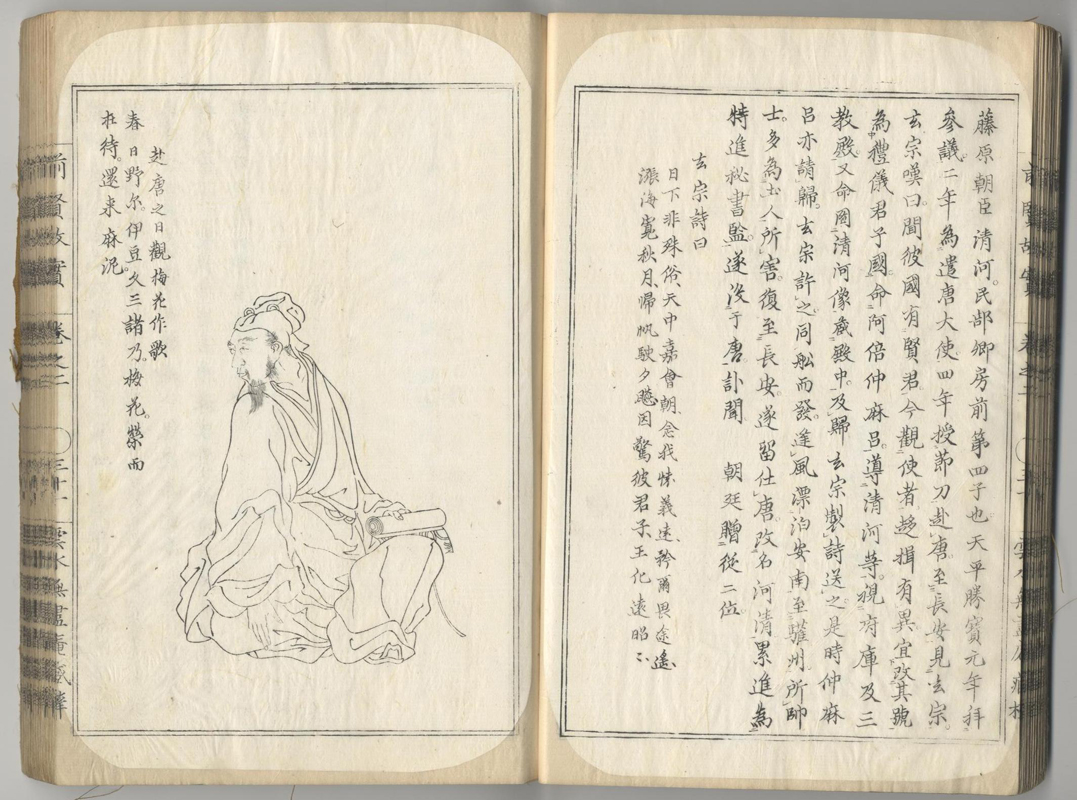 藤原朝臣清河。民部卿房前第四子也。天平勝寶元年拜
參議。二年為遣唐大使四年授節刀赴唐。至長安見玄宗。
玄宗嘆曰聞彼國有賢君。今觀使者趍揖有異。宜改其號
為禮儀君子國。命阿倍仲麻呂。導清河等。視府庫及三
教殿。又命圖清河像。蔵殿中。及歸玄宗製詩送之。是時仲麻
呂亦請歸。玄宗許之。同舩而發。逢風漂泊安南。至驩州。所帥
士。多為土人所害。復至長安。遂留仕唐。改名河清。累進為
特進秘書監。遂没于唐。訃聞 朝廷贈從二位。
玄宗詩曰
日下非殊俗。天中嘉會朝。念我懐義遠。矜爾畏途遙。
漲海寛秋月。帰帆駛夕飈。因驚彼君子。王化遠昭々
赴唐之日觀梅花作歌
春日野尓。伊豆久三諸乃。梅花。榮而
在待。還来麻泥。
前賢故實 卷之二